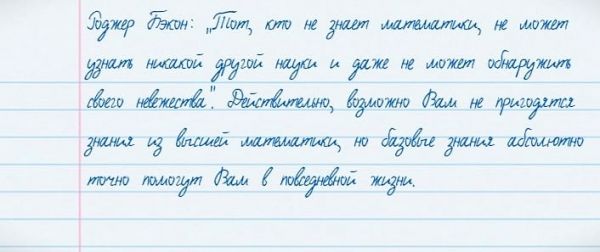 Роджер Бэкон: „Тот, кто не знает математики, не может
узнать никакой другой науки и даже не может обнаружить
своего невежества". Действительно, возможно Вам не пригодятся
знания из высшей математики, но базовые знания абсолютно
точно помогут Вам в повседневной жизни.